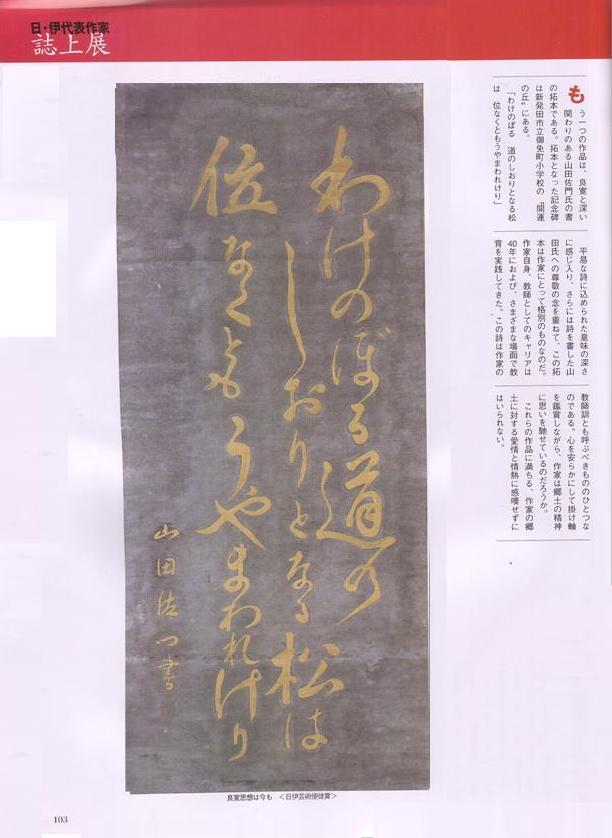 日・伊代表作家
誌上展
もう一つの作品は、良寛と深い
関わりのある山田佐門氏の書
の拓本である。拓本となった記念碑
は新発田市立御免町小学校の“開運
の丘”にある。
「わけのぼる　道のしおりとなる松
は　位なくともうやまわれけり」
平易な詩に込められた意味の深さ
に感じ入り、さらには詩を書した山
田氏への尊敬の念を重ねて、この拓
本は作家にとって格別のものなのだ。
作家自身、教師としてのキャリアは
40年におよび、さまざまな場面で教
育を実践してきた。この詩は作家の
教師訓とも呼ぶべきもののひとつな
のである。心を安らかにして掛け軸
を鑑賞しながら、作家は郷土の精神
に思いを馳せているのだろうか。
これらの作品に満ちる、作家の郷
土に対する愛情と情熱に感嘆せずに
はいられない。
わけのぼる道の
しおりとなる松は
位なくともうやまわれけり
山田佐門書
良寛思想は今も　＜日伊芸術使徒賞＞
103